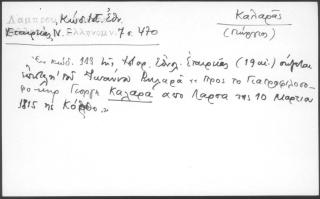 Λάμπρου, Κώδ. Ιστ. Εθν.
Εταιρείας Ν. Ελληνομν. 7 σ. 470
Καλαράς
(Γιώργος)
Εν κώδ. 118 της Ιστορ. Εθνολ. Εταιρείας (19 αι.) σώζεται
επιστολή του Ιωάννου Βηλαρά "προς το Γιατροφιλοσο-
φο κυρ Γιώργη Καλαρά από Λάρσα της 10 Μαρτίου
1815 της Κόρθο"